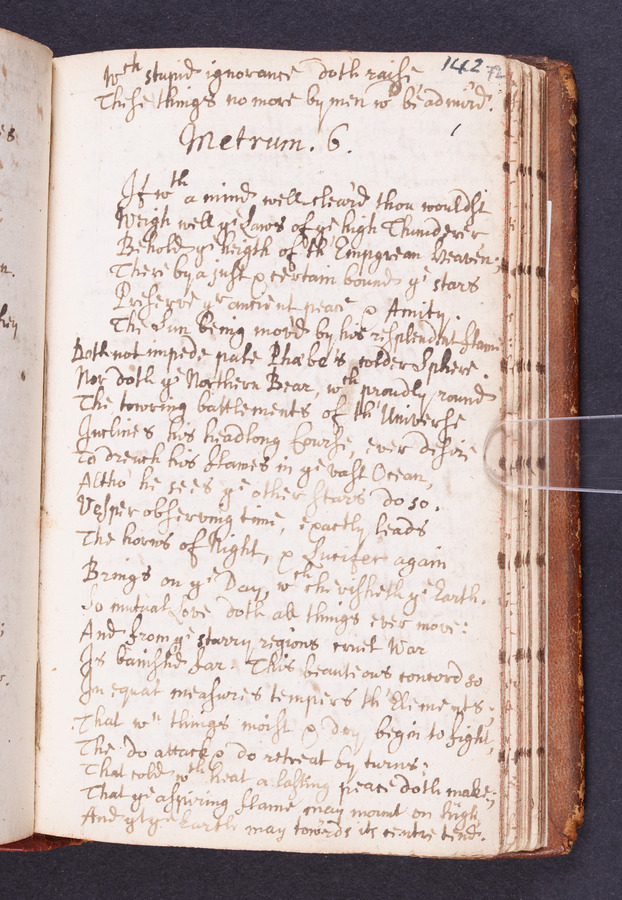 142 72
Wch stupid ignorance doth raise
These things no more by men wd be admir'd.
Metrum. 6.
If wth a mind well clear'd thou wouldst
Weigh well ye Laws of ye high Thunderer
Behold ye heigth of th' Empyrean Heaven;
There by a just & certain bound ye stars
Preserve yr antient peace & Amity.
The Sun being mov'd by his resplendent flame
Doth not impede pale Phœbe's colder Sphere.
Nor doth ye Northern Bear, wch proudly round
The towring battlements of th' Universe
Inclines his headlong Course, ever desire
To drench his flames in ye vast Ocean,
Altho' he sees ye other stars do so.
Vesper observing time, exactly leads
The horns of Night, & Lucifer again
Brings on ye Day, wch cherisheth ye Earth.
So mutual Love doth all things ever move:
And from ye starry regions cruel War
Is banish'd far. This beauteous concord so
In equal measures tempers th' Elements;
That wn things moist & dry begin to fight,
The do attack & do retreat by turns;
That cold wth heat a lasting peace doth make;
That ye aspiring flame may mount on high,
And yt ye Earth may towards its centre tend.